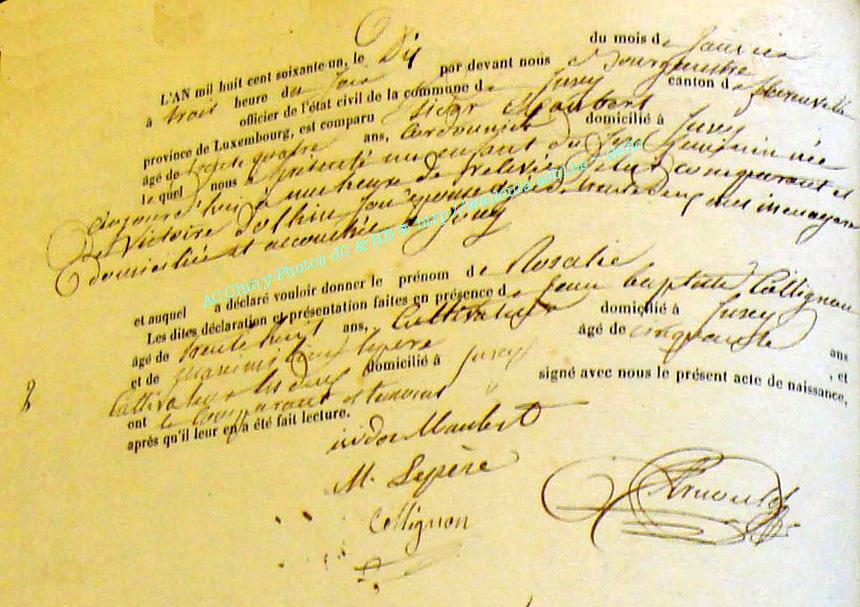 L'AN mil huit cent soixante-un, le Dix du mois de Janvier
à trois heure du soir par devant nous Bourgmestre
officier de l'état civil de la commune de Jusey canton de Florenville
province de Luxembourg, est comparu Isidor Maubert
âgé de trente quatre ans, Cordonnier domicilié à Jusey
lequel nous a présenté un enfant du sexe féminin née
aujourd'hui à une heure de relevée de lui comparant et
de Victoire son épouse âgée de trente deux ans menagère
domiciliée et accouchée à Jusey
AGChiny-Photos dG & HB
et auquel a déclaré vouloir donner le prénom de Rosalie
Les dites déclaration et présentation faites en présence de Jean baptiste Collignon
âgé de trente huit ans, Cultivateur domicilié à Jusey
et de maximilien lepere âgé de cinquante ans
Cultivateur les deux domicilié à Jusey , et
ont le Comparant et temoins signé avec nous le présent acte de naissance,
après qu'il leur en a été fait lecture.
isidor Maubert
M. Lepère
Collignon